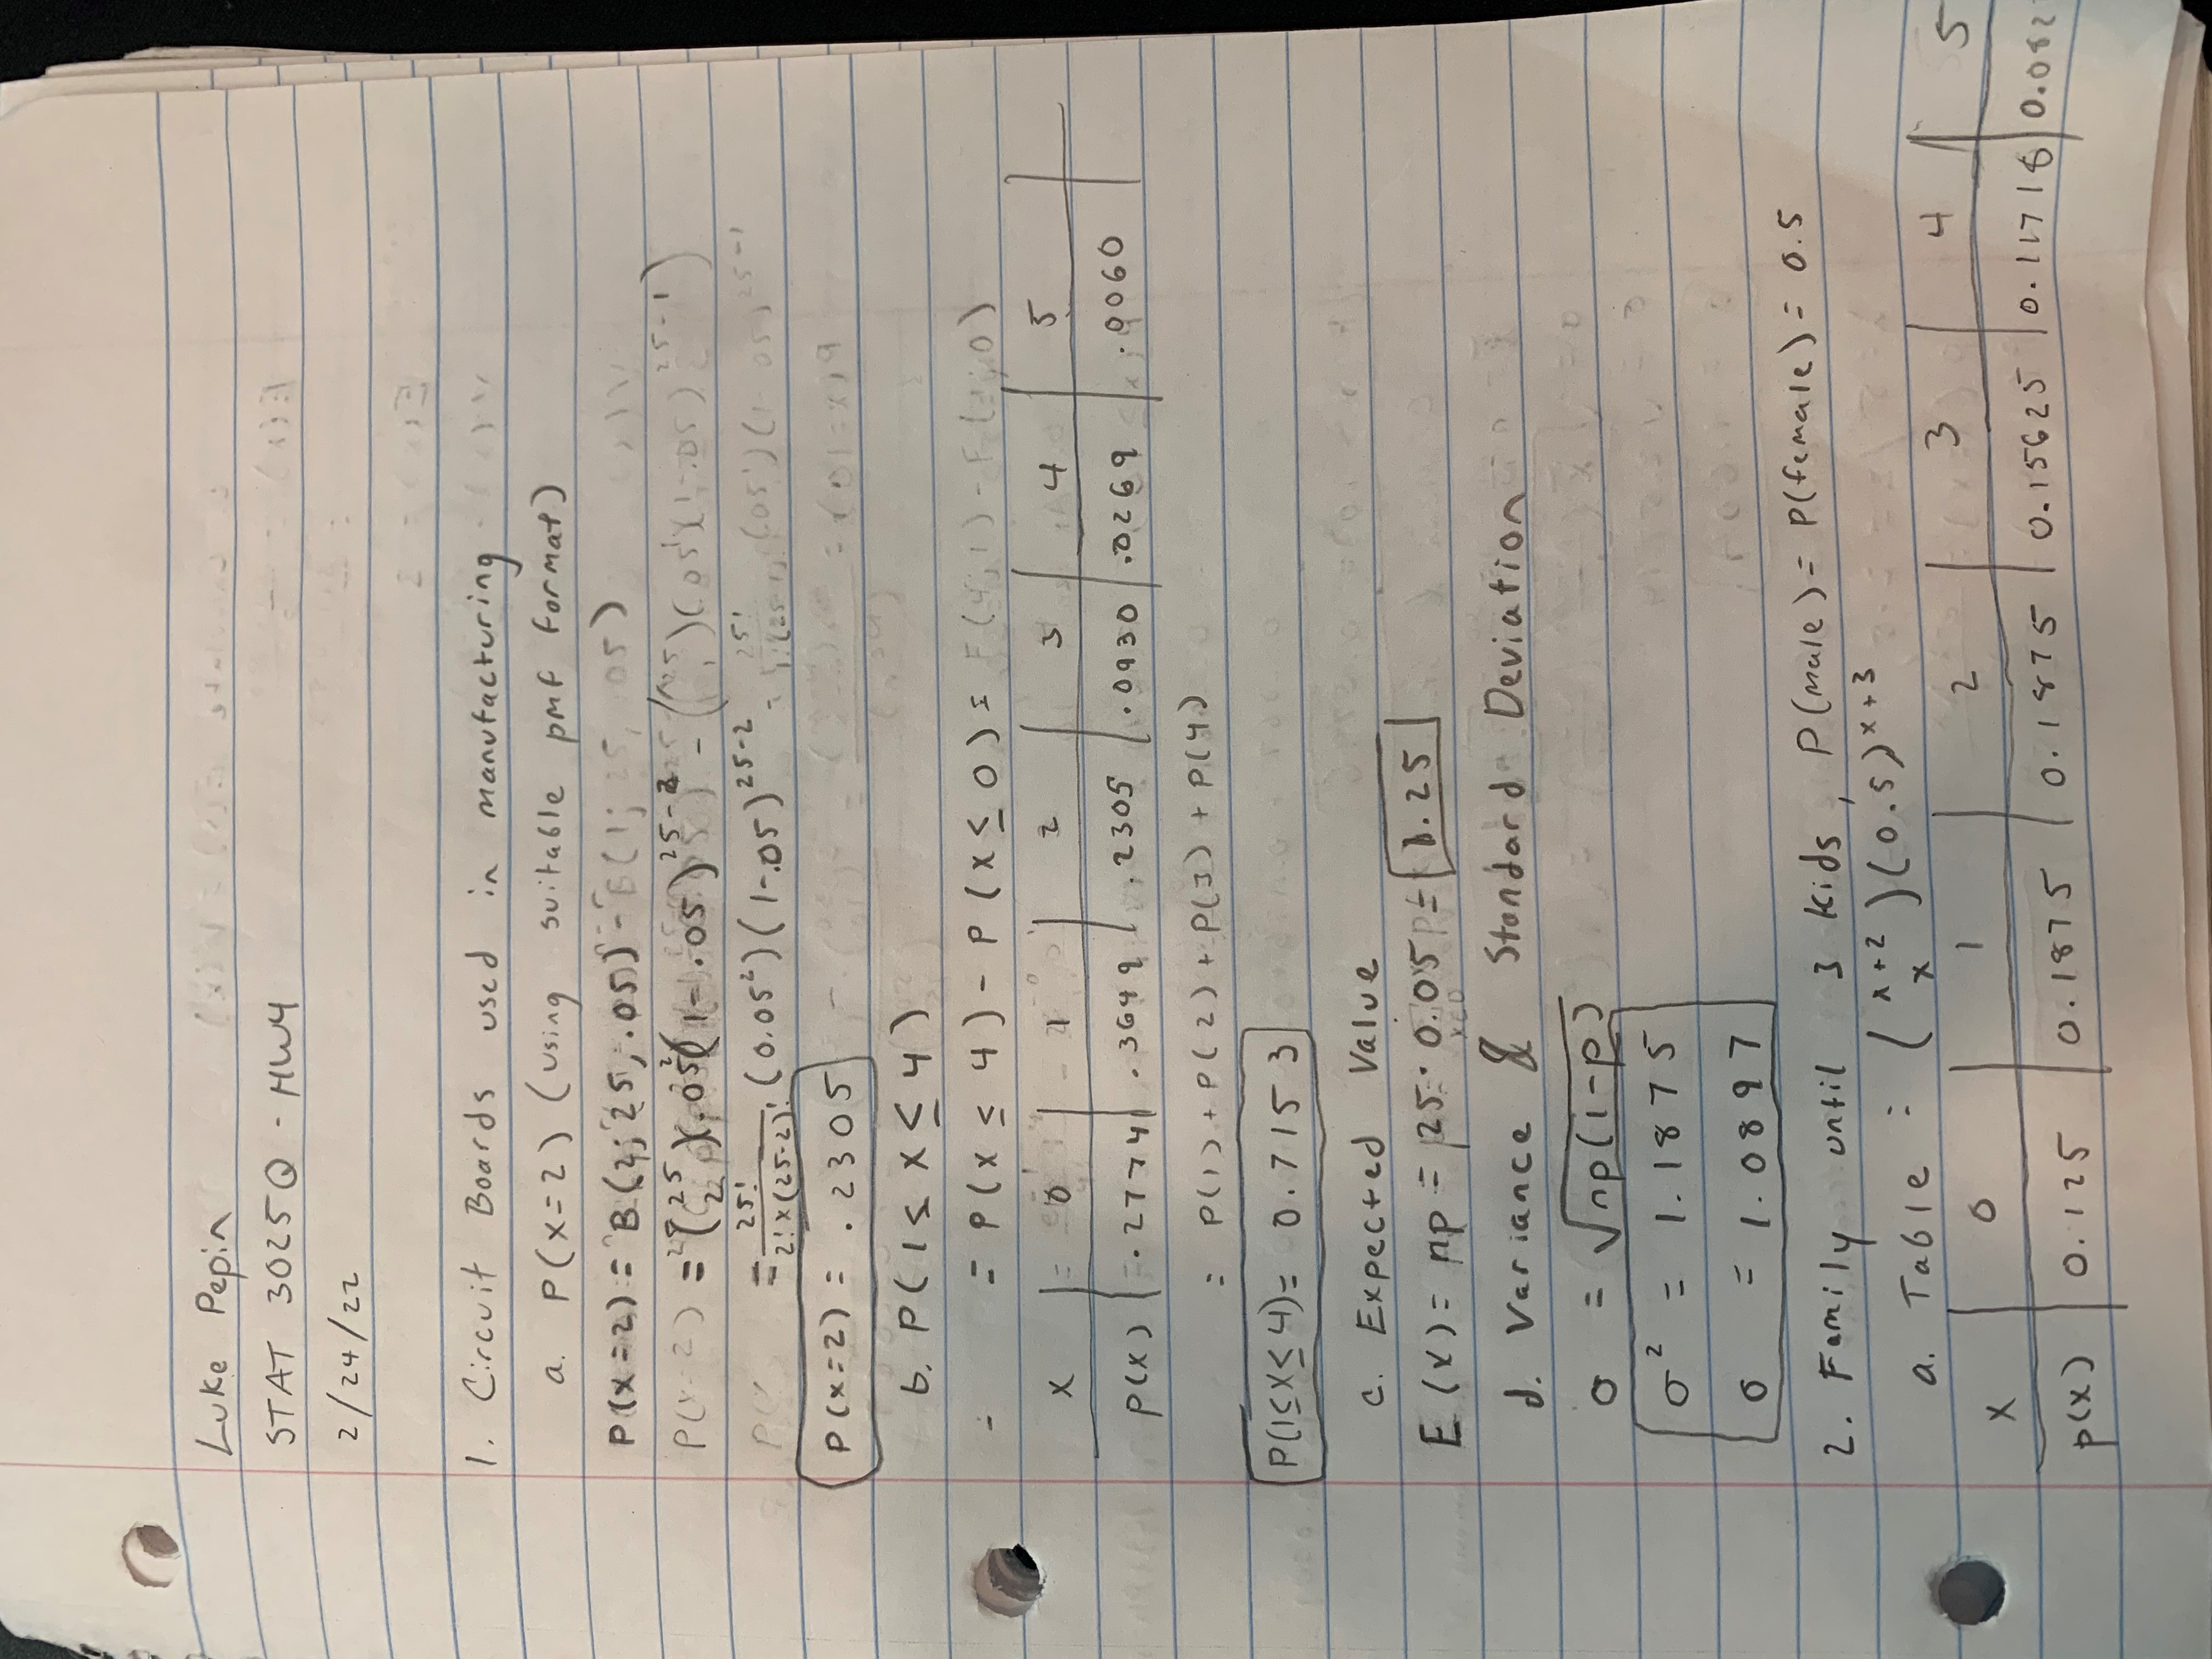 Luke Pepin
STAT 3025Q - HW4
2/24/22
1. Circuit Boards used in manufacturing
a. P(x=2) (using suitable pmf format)
P(x=2) = B(2; 25, .05) - B(1; 25, .05)
P(x=2) = (25 2)(.05²(1-.05)^25-2 - (25 1)(.05¹)(1-.05)^25-1)
= 25!/2!×(25-2)! · (0.05²)(1-.05)^25-2 - 25!/1!(25-1)! (.05¹)(1-.05)^25-1
P(x=2) = .2305
b. P(1≤ x ≤ 4)
= P(x ≤ 4) - P(x ≤ 0) = F(4;1) - F(1;0)
x | 0 | 1 | 2 | 3 | 4 | 5
P(x) | .2774 | .3649 | .2305 | .0930 | .0269 | .0060
= P(1) + P(2) + P(3) + P(4)
P(1≤x≤4) = 0.7153
c. Expected Value
E(x) = np = 25 · 0.05 = 1.25
d. Variance & Standard Deviation
σ = √np(1-p)
σ² = 1.1875
σ = 1.0897
2. Family until 3 kids, P(male) = P(female) = 0.5
a. Table : (x+2 x)(0.5)^x+3
x | 0 | 1 | 2 | 3 | 4 | 5
p(x) | 0.125 | 0.1875 | 0.1875 | 0.15625 | 0.11718 | 0.082